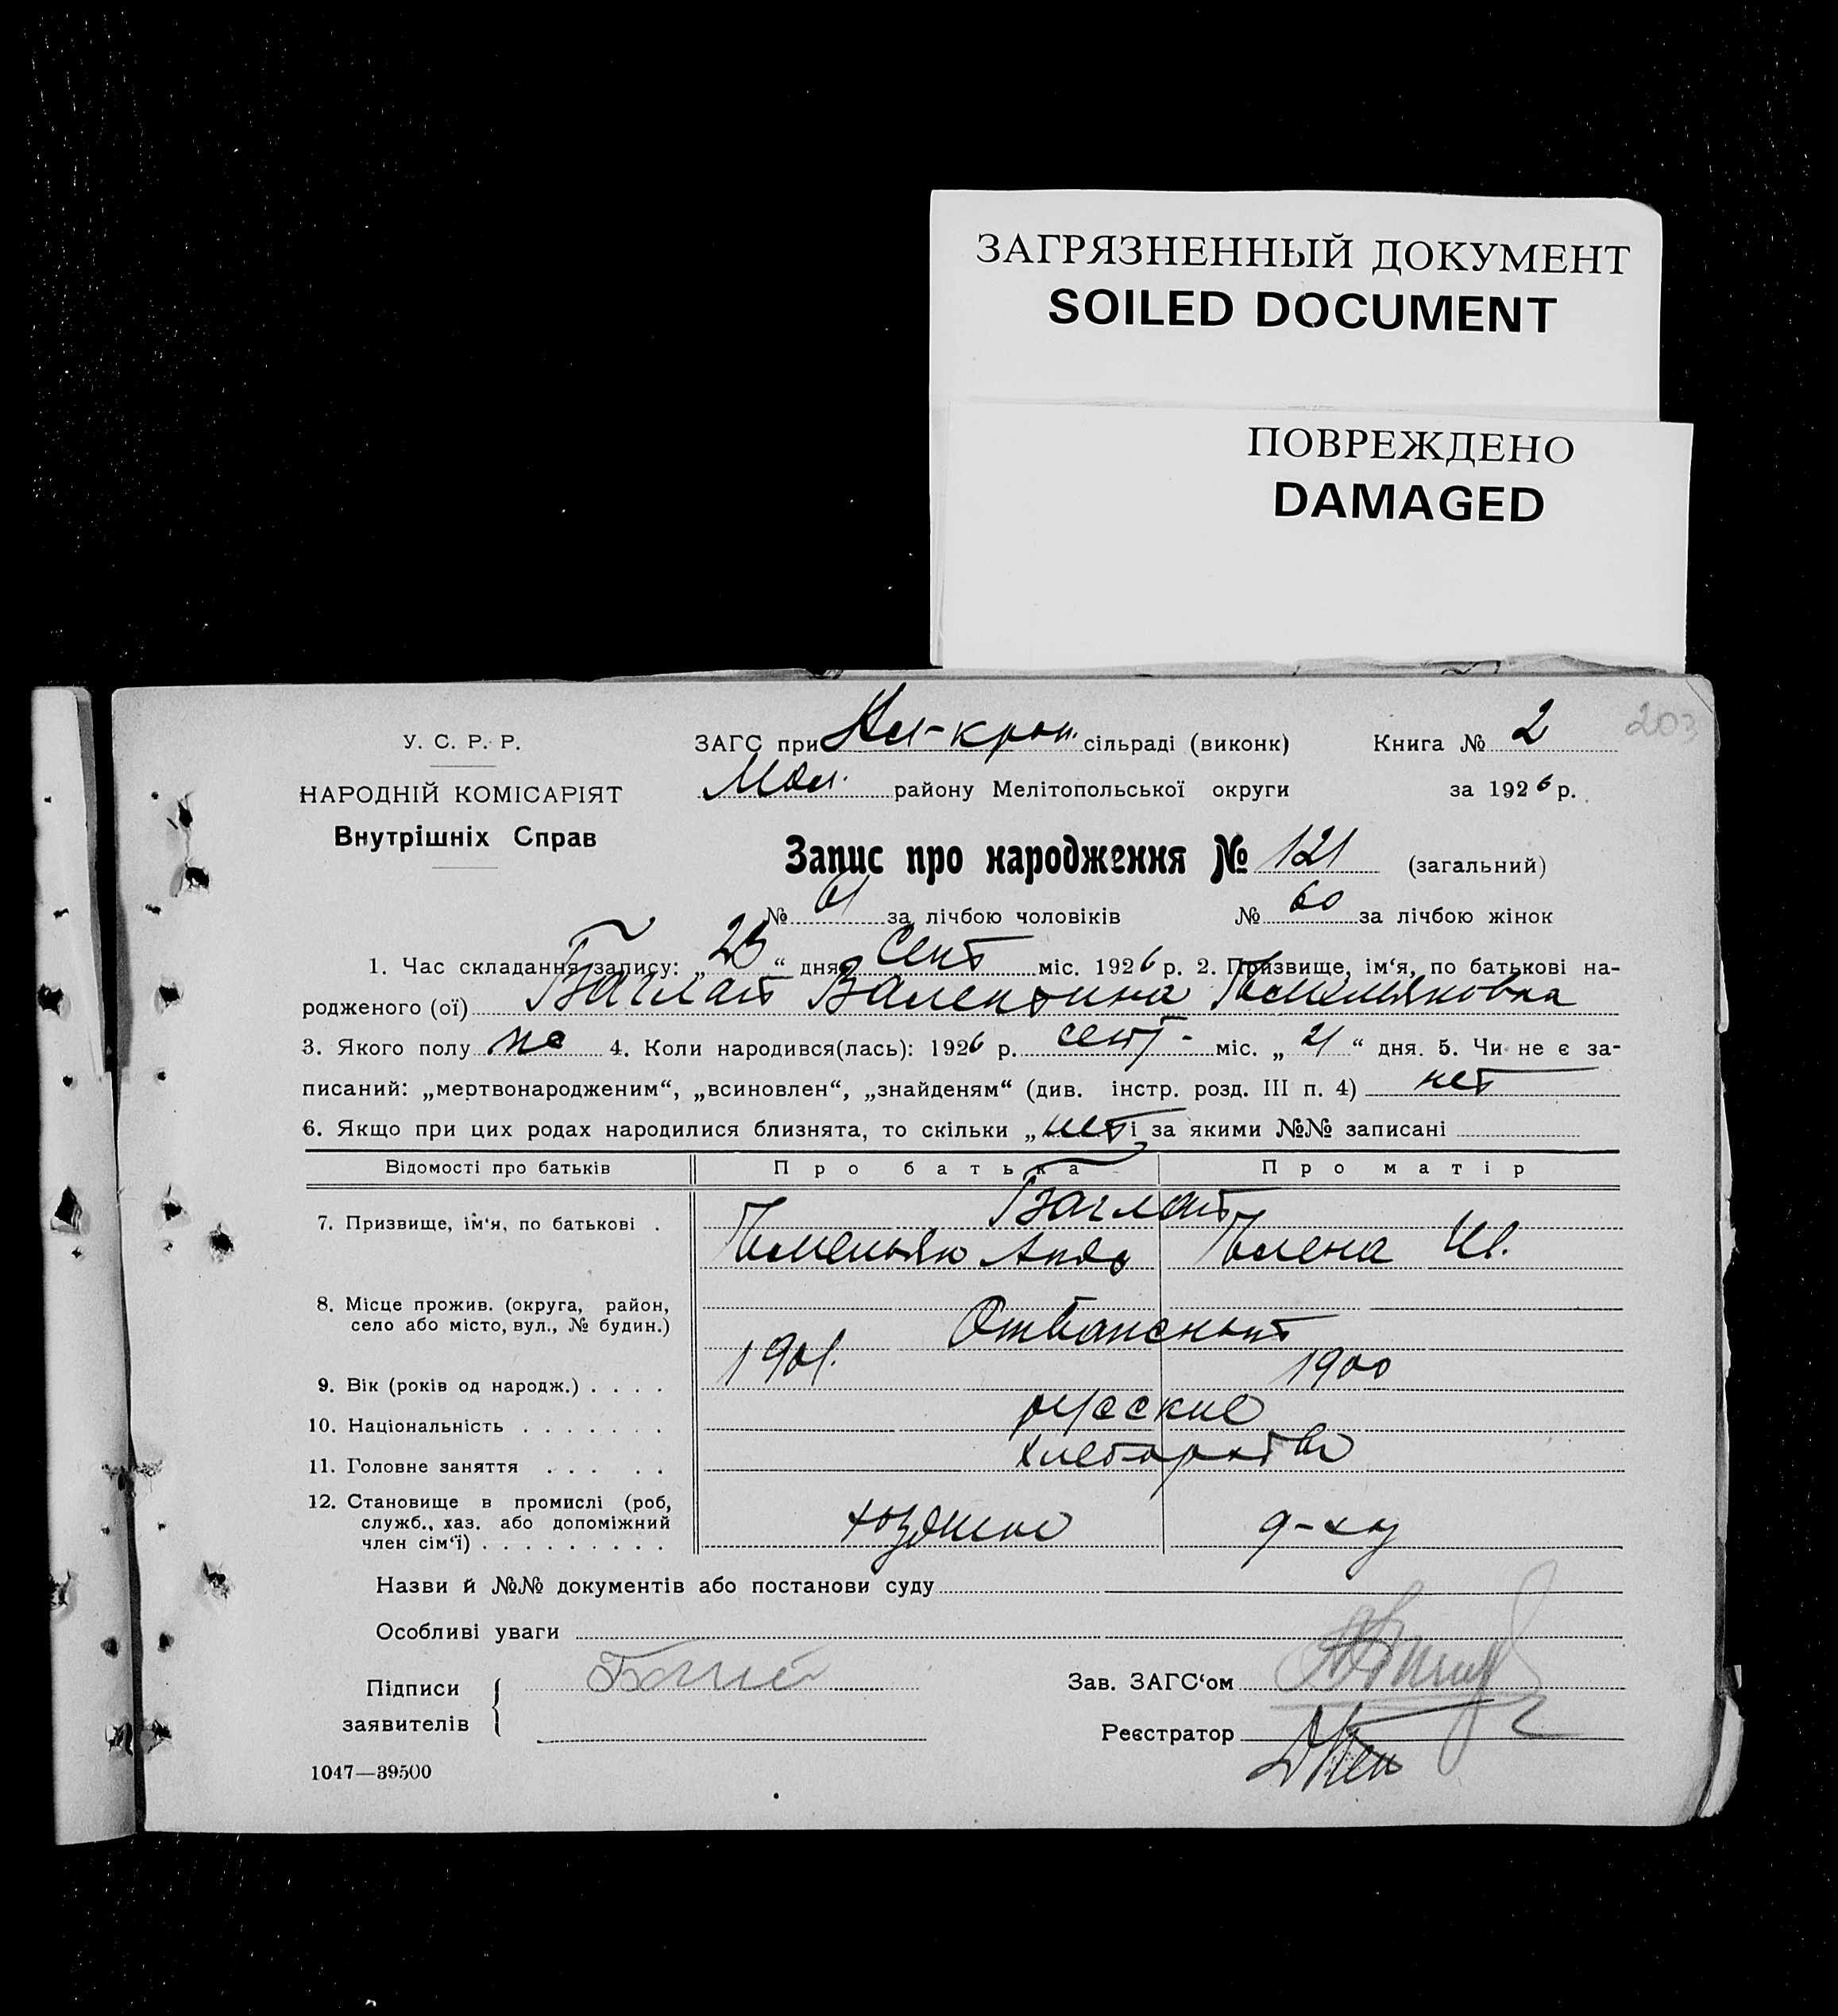 ЗАГРЯЗНЕННЫЙ ДОКУМЕНТ
SOILED DOCUMENT
ПОВРЕЖДЕНО
DAMAGED
203
У. С. Р. Р.
НАРОДНІЙ КОМІСАРІЯТ
Внутрішніх Справ
ЗАГС при сільраді (виконк) Книга № 2
Мол. району Мелітопольської округи за 1926 р.
Запис про народження № 121 (загальний)
№ 61 за лічбою чоловіків № 60 за лічбою жінок
1. Час складання запису: „23“ дня Сент міс. 1926 р. 2. Призвище, ім‘я, по батькові на-
родженого (ої) Баглай Валентина Емельяновна
3. Якого полу 4. Коли народився(лась): 1926 р. сент- міс. „21“ дня. 5. Чи не є за-
писаний: „мертвонародженим“, „всиновлен“, „знайденям“ (див. інстр. розд. III п. 4) нет
6. Якщо при цих родах народилися близнята, то скільки „нет і за якими №№ записані
Відомості про батьків Про батька Про матір
7. Призвище, ім‘я, по батькові . Баглай
Емельян Анд Елена
8. Місце прожив. (округа, район,
село або місто, вул., № будин.)
9. Вік (років од народж.) . . . . 1901. 1900
10. Національність . . . . . . . русские
11. Головне заняття . . . . . хлеборобство
12. Становище в промислі (роб,
служб., хаз. або допоміжний
член сім‘ї) . . . . . . . . .
Назви й №№ документів або постанови суду
Особливі уваги
Підписи
заявителів
Зав. ЗАГС‘ом
Реєстратор
1047—39500